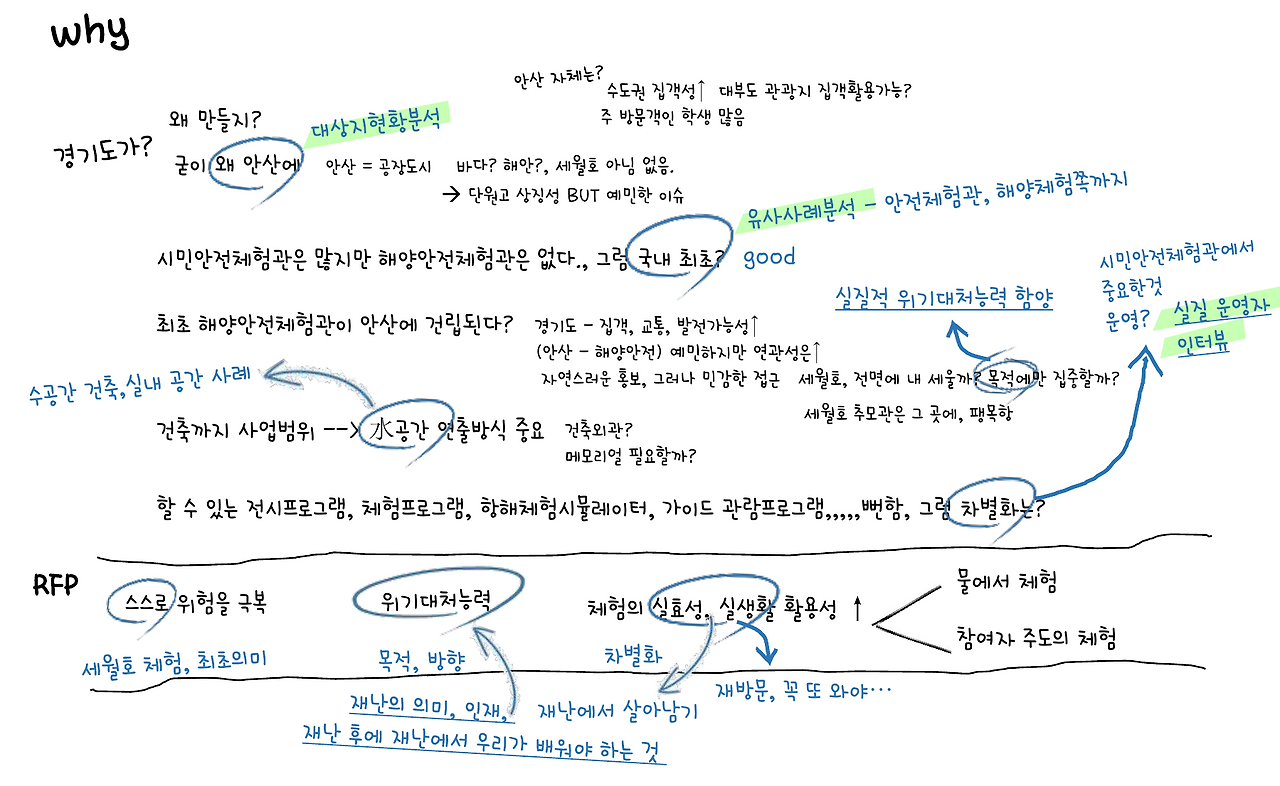 why
안산 자체는?
수도권 집객성↑ 대부도 관광지 집객활용가능?
주 방문객인 학생 많음
경기도가?
왜 만들지?
대상지현황분석
굳이 왜 안산에
안산 = 공장도시 바다? 해안?, 세월호 아님 없음.
→ 단원고 상징성 BUT 예민한 이슈
유사사례분석 - 안전체험관, 해양체험쪽까지
시민안전체험관은 많지만 해양안전체험관은 없다., 그럼 국내 최초?
good
시민안전체험관에서
중요한것
운영? 실질 운영자
인터뷰
실질적 위기대처능력 함양
최초 해양안전체험관이 안산에 건립된다?
경기도 - 집객, 교통, 발전가능성↑
(안산 - 해양안전) 예민하지만 연관성은↑
자연스러운 홍보, 그러나 민감한 접근
세월호, 전면에 내 세울까? 목적에만 집중할까?
세월호 추모관은 그 곳에, 팽목항
수공간 건축,실내 공간 사례
건축까지 사업범위 --> 水공간 연출방식 중요
건축외관?
메모리얼 필요할까?
할 수 있는 전시프로그램, 체험프로그램, 항해체험시뮬레이터, 가이드 관람프로그램,,,,,뻔함, 그럼 차별화는?
RFP
스스로 위험을 극복
위기대처능력
체험의 실효성, 실생활 활용성 ↑
물에서 체험
참여자 주도의 체험
세월호 체험, 최초의미
목적, 방향
차별화
재방문, 꼭 또 와야…
재난의 의미, 인재,
재난에서 살아남기
재난 후에 재난에서 우리가 배워야 하는 것